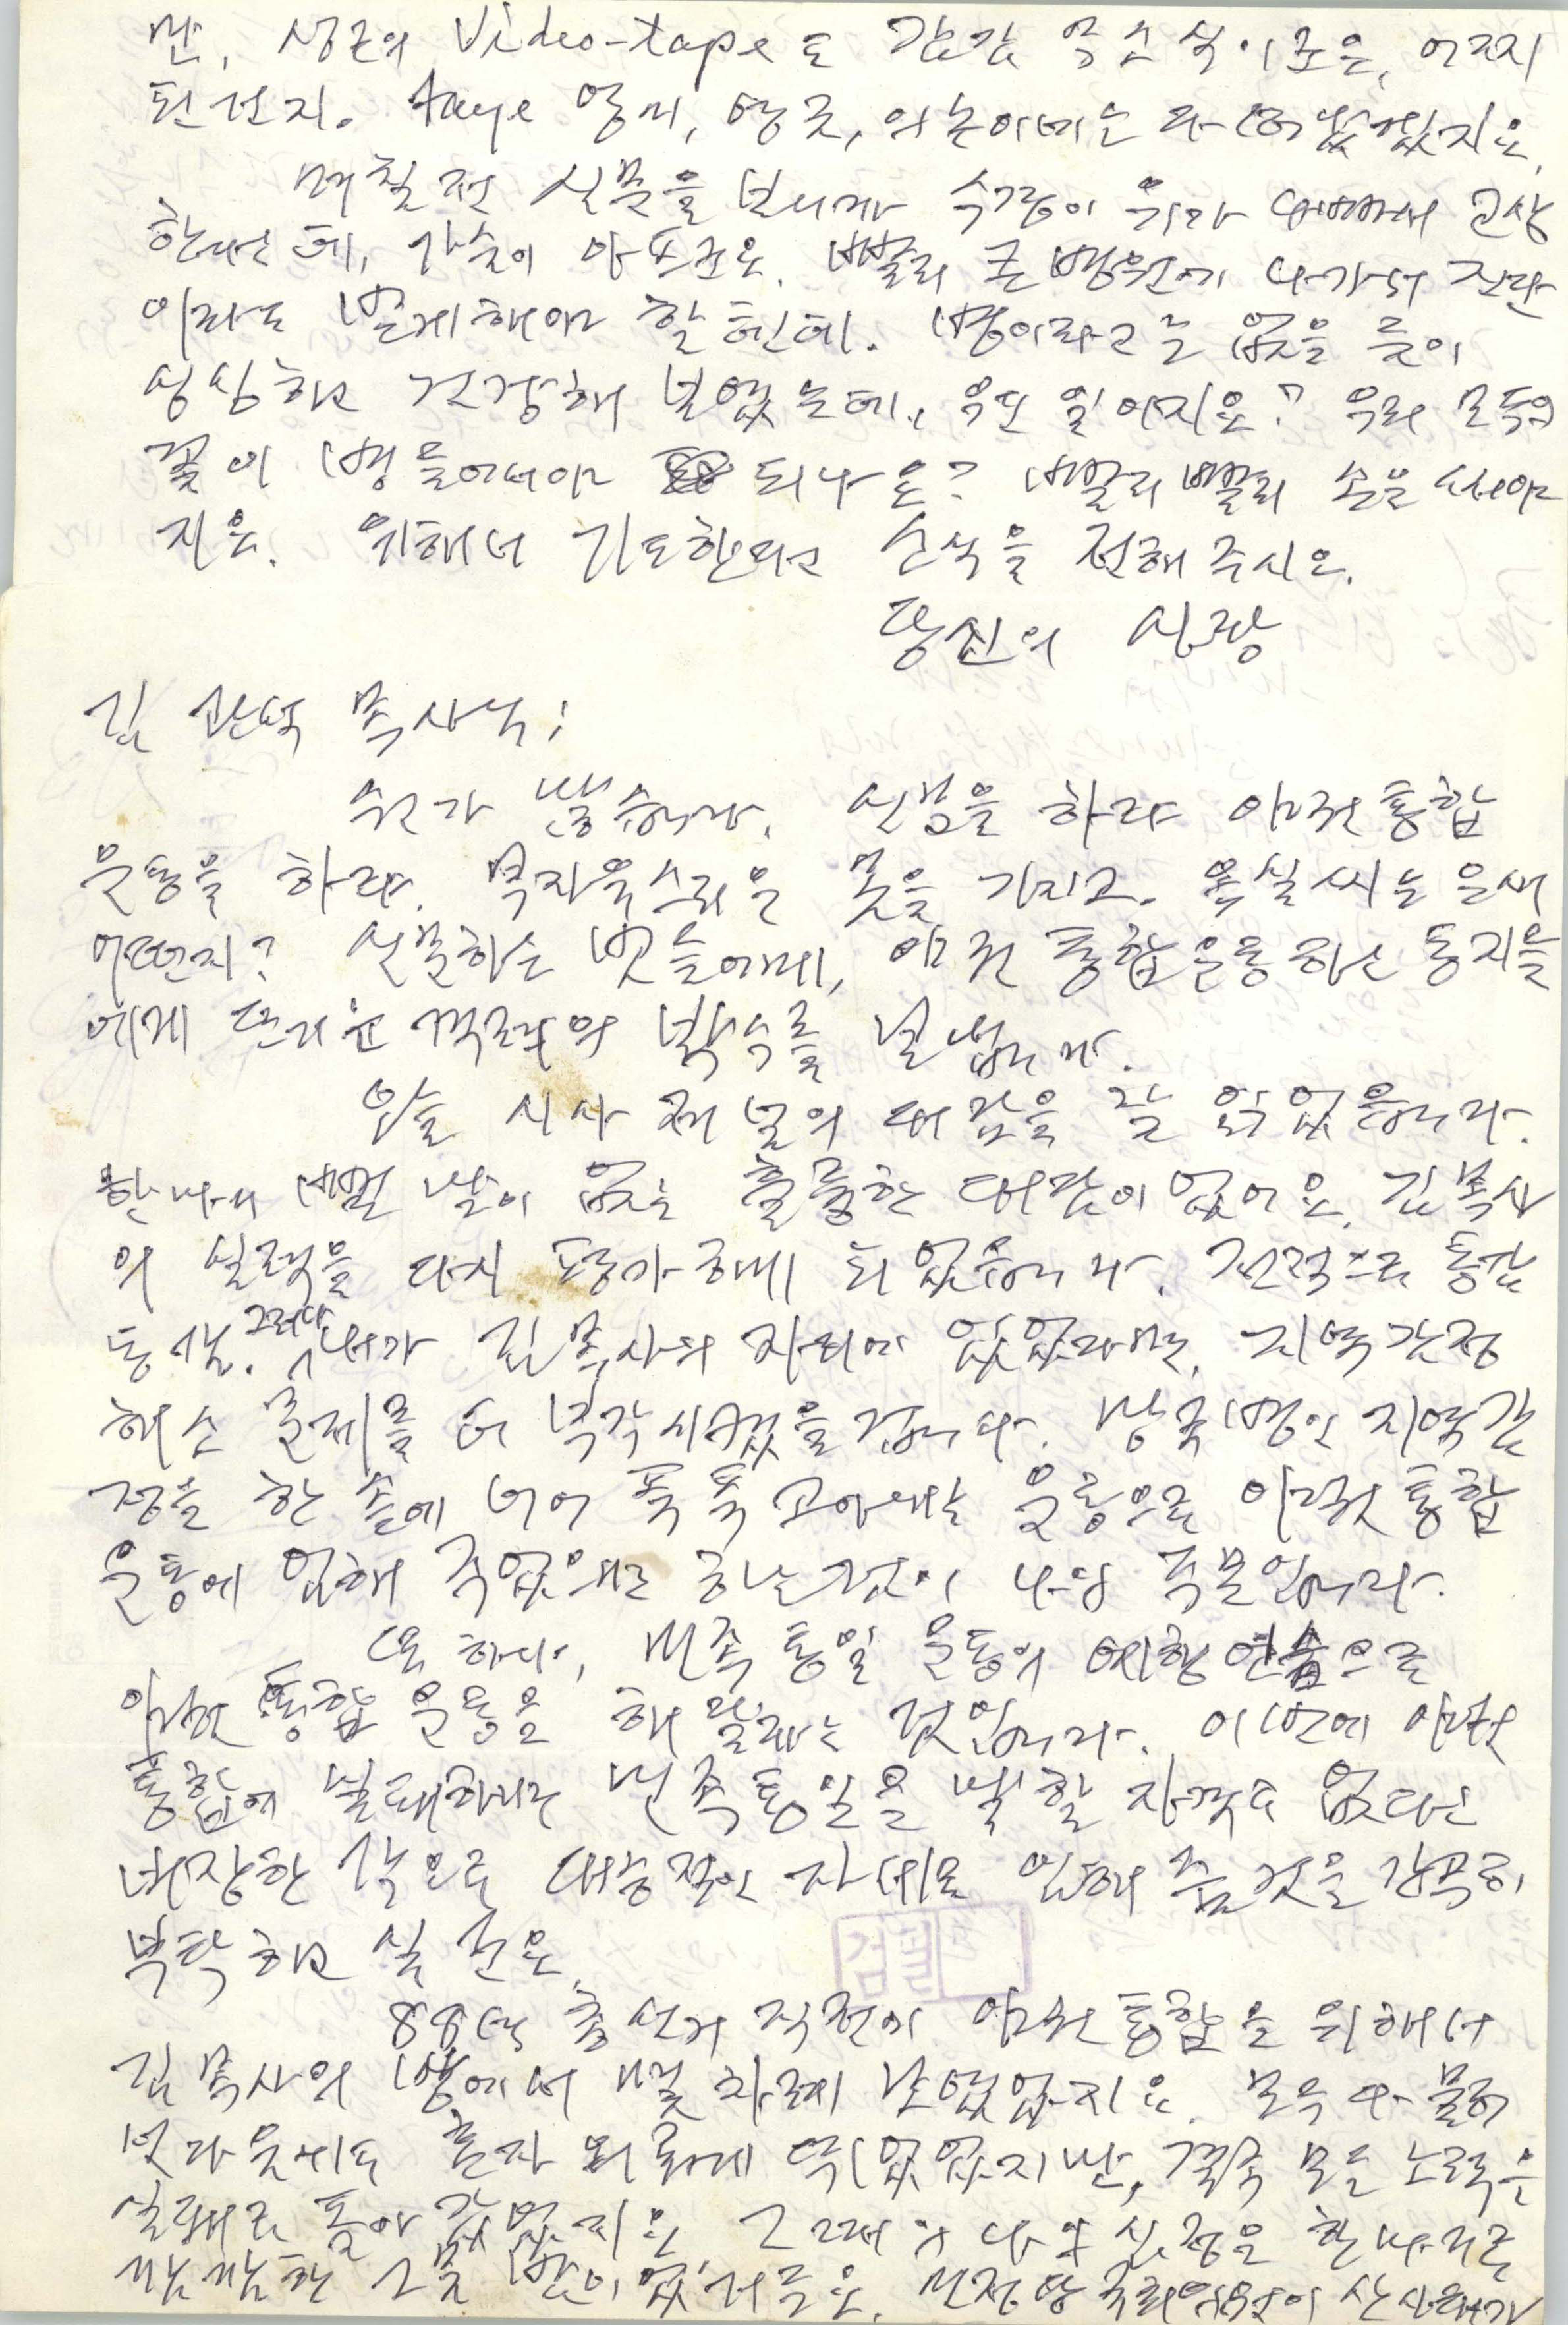 면, 성근의 Video-tape도 감감 무소식이군요, 어찌
된건지. tape 영미, 영금, 의근이에게는 다
며칠 전 신문을 보니까 수경이 위가 나빠서 고생
한다는데, 가슴이 아프군요. 빨리 큰 병원에 나가서 진단
이라도 받게 해야 할 텐데. 병이라고는 없을 듯이
싱싱하고 건강해 보였는데, 무슨 일이지요? 우리 모두의
꽃이 병들어서야 되나요? 빨리 빨리 손을 써야
지요. 위해서 기도한다고 소식을 전해 주시오.
당신의 사랑
김 관석 목사님;
수고가 많습니다. 신문을 하랴 야권 통합
운동을 하랴. 부자유스러운 몸을 가지고. 옥실씨는 요새
어떤지? 신문하는 벗들에게, 야권 통합 운동 하는 동지들
에게 뜨거운 격려의 박수를 보냅니다.
오늘 시사 저널의 대담을 잘 읽었습니다.
한마디 버릴 말이 없는 훌륭한 대담이었어요. 김 목사
의 실력을 다시 평가하게 되었습니다. 전적으로 동감
동감. 그러나 내가 김 목사의 자리에 있었다면, 지역 감정
해소 문제를 더 부각시켰을 겁니다. 망국병인 지역 감
정을 한 솥에 넣어 푹 푹 고아내는 운동으로 야권 통합
운동에 임해 주었으면 하는 것이 나의 주문입니다.
또 하나, 민족 통일 운동의 예행 연습으로
야권 통합 운동을 해 달라는 것입니다. 이번에 야권
통합에 실패하면 민족 통일을 말할 자격도 없다는
비장한 각오로 대승적인 자세로 임해 줄 것을 간곡히
부탁하고 싶군요.
88년 총선거 직전에 야권 통합을 위해서
김 목사의 방에서 몇 차례 모였었지요. 모두 다 물러
난 다음에도 혼자 외롭게 뛰었었지만, 결국 모든 노력은
실패로 돌아갔었지요. 그때의 나의 심정은 한마디로
깜깜한 그믐 밤이었거든요. 민정당 국회의원이
검 필